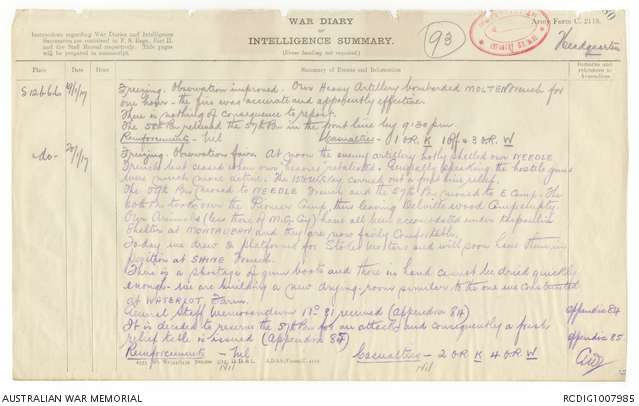 WAR DIARY
of
INTELLIGENCE SUMMARY.
(Erase heading not required.)
Army Form C. 2118.
Instructions regarding War Diaries and Intelligence
Summaries are contained in F. S. Regs., Part II.
and the Staff Manual respectively. Title pages
will be prepared in manuscript.
93
Headquarters
Place Date Hour Summary of Events and Information Remarks and references to Appendices
S12b66 19/1/17 Freezing. Observation improved. Our Heavy Artillery bombarded MOLTEN trench for
one hour - the fire was accurate and apparently effective.
There is nothing of consequence to report.
The 58th Bn relieved the 57th Bn in the front line by 9.30 pm.
Reinforcements - Nil Casualties - 1 O.R. K 1 Off 43 O.R. W
-do- 20/1/17 Freezing. Observation fair. At noon the enemy artillery hotly shelled our NEEDLE
Trench but ceased when our "heavies" retaliated. Generally speaking the hostile guns
were much more active. The 15th Bde carried out a inter Bn relief.
The 59th Bn moved to NEEDLE Trench and the 57th Bn moved to E Camp. The
60th Bn took over the Pioneer Camp, thus leaving Delville wood Camp empty.
Our Animals (less those of M.G. Coy) have all been accommodated under tarpaulin
shelter at MONTAUBAN and they are now fairly comfortable.
Today we drew 2 platforms for Stokes Mortars and will soon have them in
position at SHINE Trench.
There is a shortage of gum boots and those in hand cannot be dried quickly
enough - we are building a new drying-room similar to the one we constructed
at WATERLOT Farm.
General Staff Memorandum No 81 received (Appendix 84) Appendix 84
It is decided to reserve the 57th Bn for an attack and consequently a fresh
relief table is issued (Appendix 85) Appendix 85
Reinforcements - Nil Casualties - 2 O.R. K 4 O.R. W
Nil Nil
AUSTRALIAN WAR MEMORIAL
RCDIG1007985